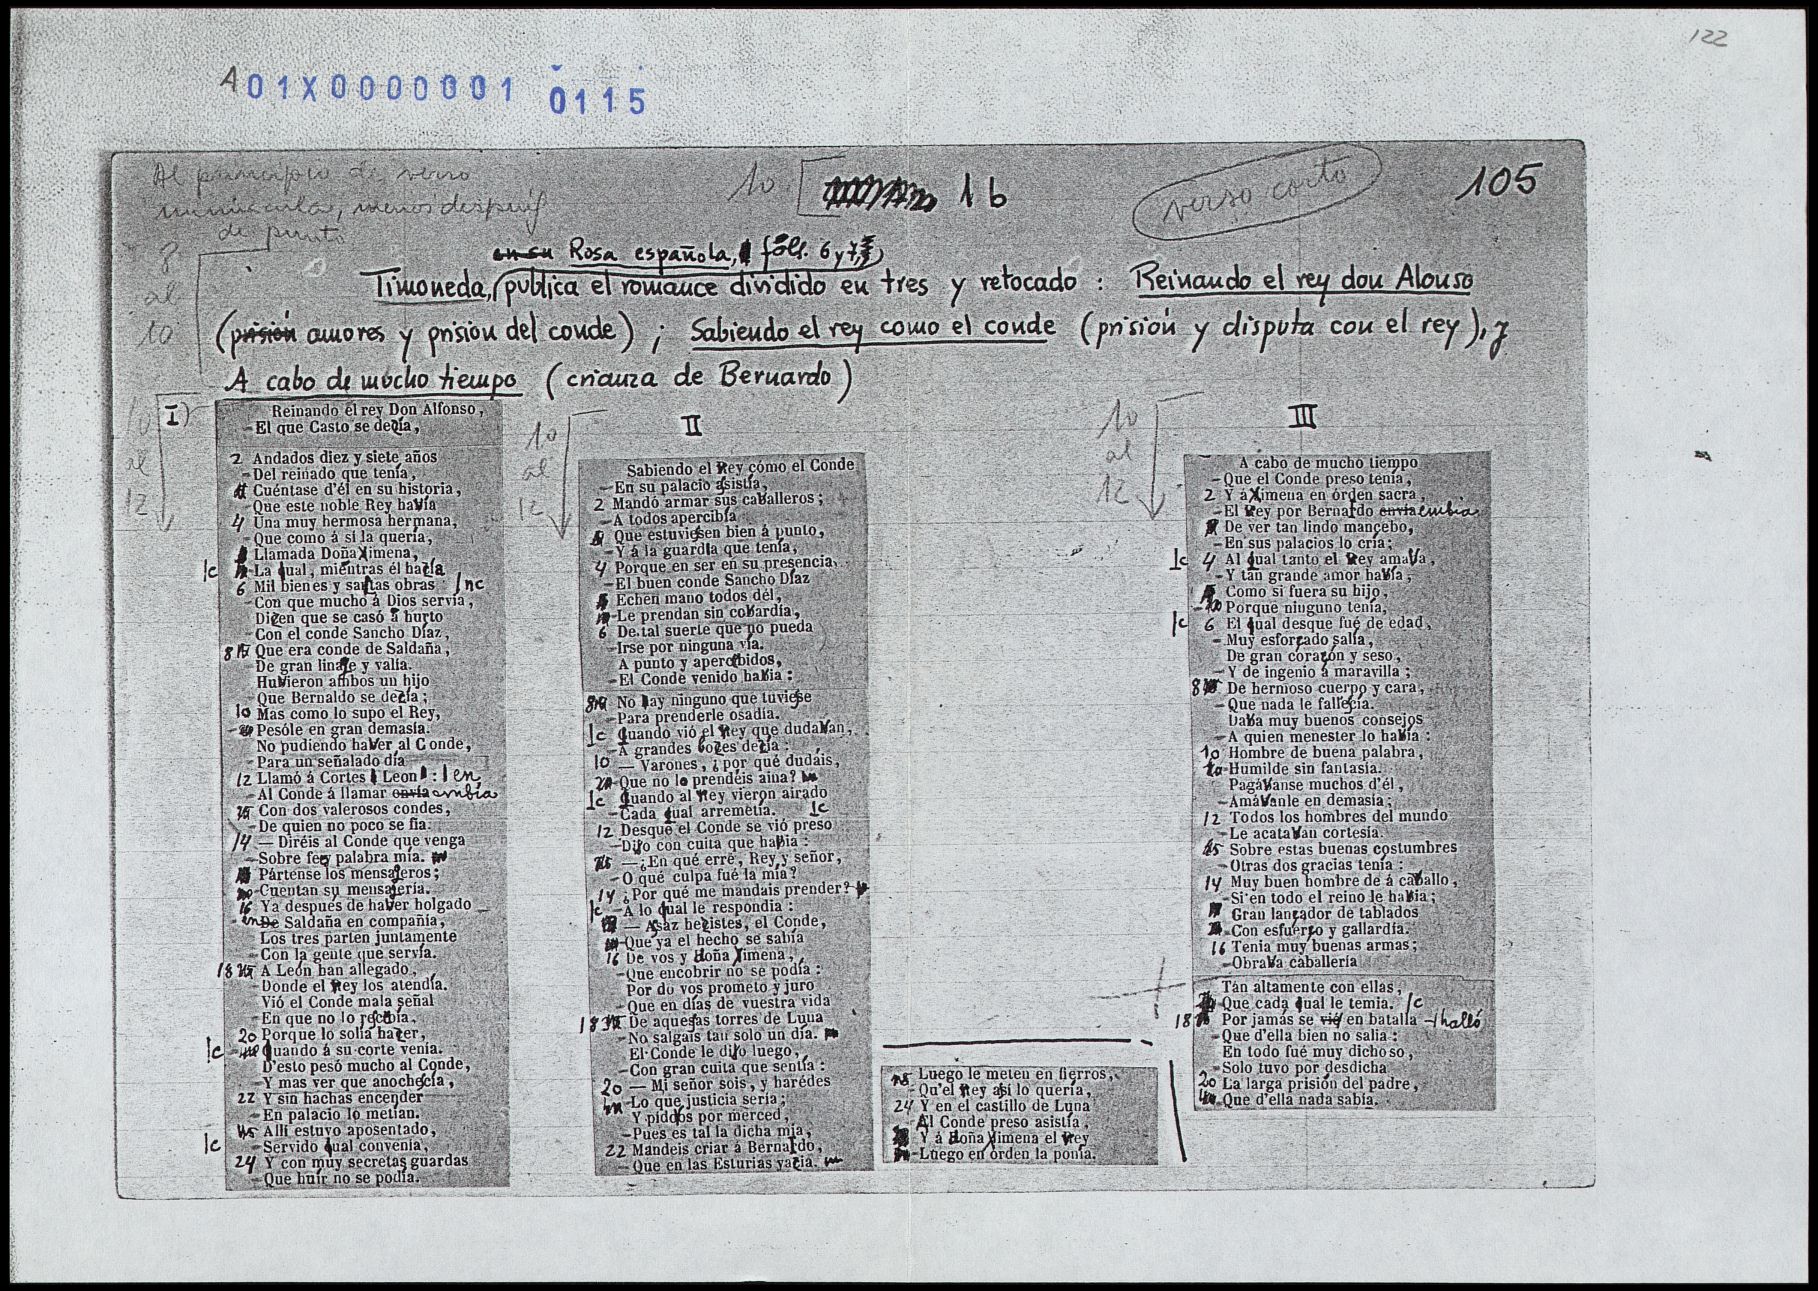 122
A01X0000001 0115
Al principio de verso
minúscula, menos después
de punto
10
1 b
verso corto
105
8
al
10
en su Rosa española, fols. 6 y 7,
Timoneda, publica el romance dividido en tres y retocado : Reinando el rey don Alonso
(prisión amores y prisión del conde) ; Sabiendo el rey como el conde (prisión y disputa con el rey), y
A cabo de mucho tiempo (crianza de Bernardo)
10
al
12
I)
Reinando el rey Don Alfonso,
- El que Casto se decía,
2 Andados diez y siete años
- Del reinado que tenía,
Cuéntase d'él en su historia,
Que este noble Rey había
4 Una muy hermosa hermana,
- Que como á si la quería,
Llamada Doña Ximena,
1c - La qual, mientras él hacía
6 Mil bienes y santas obras 1nc
- Con que mucho á Dios servía,
Dicen que se casó á hurto
- Con el conde Sancho Díaz,
8 Que era conde de Saldaña,
- De gran linaje y valía.
Huvieron ambos un hijo
- Que Bernaldo se decía;
10 Mas como lo supo el Rey,
- Pesóle en gran demasía.
No pudiendo haver al Conde,
- Para un señalado día
12 Llamó á Cortes León : 1 en
- Al Conde á llamar envia embia
Con dos valerosos condes,
- De quien no poco se fia.
14 — Diréis al Conde que venga
- Sobre fe y palabra mia.
Pártense los mensajeros;
- Cuentan su mensajería.
16 Ya después de haver holgado
- en De Saldaña en compañía,
Los tres parten juntamente
- Con la gente que servía.
18 A León han allegado,
- Donde el Rey los atendía.
Vió el Conde mala señal
- En que no lo rescebía,
20 Porque lo solía hazer,
1c - Quando á su corte venía.
D'esto pesó mucho al Conde,
- Y mas ver que anochecía,
22 Y sin hachas encender
- En palacio lo metían.
Allí estuvo aposentado,
1c - Servido qual convenía,
24 Y con muy secretas guardas
- Que huir no se podía.
10
al
12
II
Sabiendo el Rey cómo el Conde
- En su palacio asistía,
2 Mandó armar sus cavalleros;
- A todos apercibía
Que estuviesen bien á punto,
- Y á la guardia que tenía,
4 Porque en ser en su presencia,
- El buen conde Sancho Díaz
Echen mano todos dél,
- Le prendan sin cobardía,
6 De tal suerte que no pueda
- Irse por ninguna vía.
A punto y apercibidos,
- El Conde venido había :
8 No hay ninguno que tuviese
- Para prenderle osadía.
1c Quando vió el Rey que dudavan,
- A grandes vozes decía :
10 — Varones, ¿por qué dudais,
- Que no lo prendéis aina?
1c Quando al Rey vieron airado
- Cada qual arremetía. 1c
12 Desque el Conde se vió preso
- Dijo con cuita que había :
— ¿En qué erré, Rey, y señor,
- O qué culpa fué la mia?
14 ¿Por qué me mandais prender?
1c - A lo qual le respondia :
— Asaz hezistes, el Conde,
- Que ya el hecho se sabía
16 De vos y doña Ximena,
- Que encobrir no se podía :
Por do vos prometo y juro
- Que en días de vuestra vida
18 De aquesas torres de Luna
- No salgais tan solo un día.
El Conde le dijo luego,
- Con gran cuita que sentía :
20 — Mi señor sois, y harédes
- Lo que justicia sería;
Y pidoos por merced,
- Pues es tal la dicha mia,
22 Mandeis criar á Bernardo,
- Que en las Esturias yacía.
- Luego le meten en fierros,
- Qu'el Rey así lo quería,
24 Y en el castillo de Luna
- Al Conde preso asistía,
Y á doña Ximena el Rey
- Luego en órden la ponía.
10
al
12
III
A cabo de mucho tiempo
- Que el Conde preso tenía,
2 Y á Ximena en órden sacra,
- El Rey por Bernardo envia embia
De ver tan lindo mancebo,
- En sus palacios lo cría;
1c 4 Al qual tanto el Rey amava,
- Y tan grande amor había,
Como si fuera su hijo,
- Porque ninguno tenía,
1c 6 El qual desque fué de edad,
- Muy esforçado salía,
De gran coraçón y seso,
- Y de ingenio á maravilla ;
8 De hermoso cuerpo y cara,
- Que nada le fallecía.
Dava muy buenos consejos
- A quien menester lo había :
10 Hombre de buena palabra,
- Humilde sin fantasía.
Pagávanse muchos d'él,
- Amávanle en demasía;
12 Todos los hombres del mundo
- Le acatavan cortesía.
Sobre estas buenas costumbres
- Otras dos gracias tenía :
14 Muy buen hombre de á cavallo,
- Si en todo el reino le había;
Gran lançador de tablados
- Con esfuerço y gallardía.
16 Tenia muy buenas armas;
- Obrava caballería
Tan altamente con ellas,
- Que cada qual le temia. 1c
18 Por jamás se vió en batalla halló
- Que d'ella bien no salía :
En todo fué muy dichoso,
- Solo tuvo por desdicha
20 La larga prisión del padre,
- Que d'ella nada sabía.